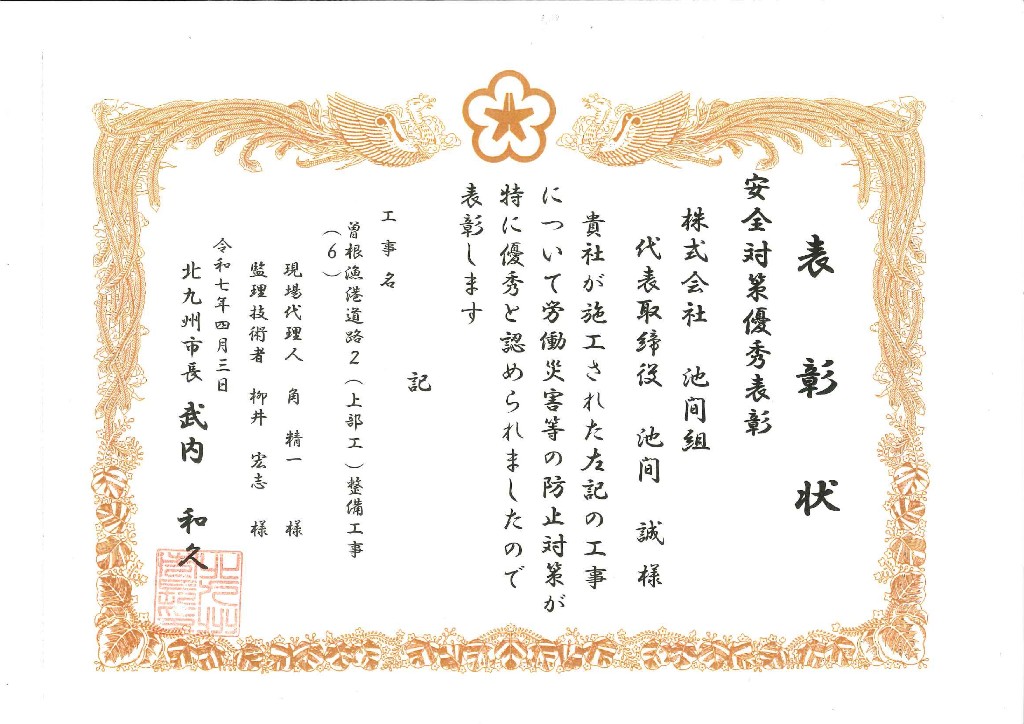 表彰状
安全対策優秀表彰
株式会社 池間組
代表取締役 池間 誠 様
貴社が施工された左記の工事
について労働災害等の防止対策が
特に優秀と認められましたので
表彰します
記
工事名
曽根漁港道路2(上部工)整備工事
(6)
現場代理人 角 精一 様
監理技術者 柳井 宏志 様
令和七年四月三日
北九州市長 武内 和久